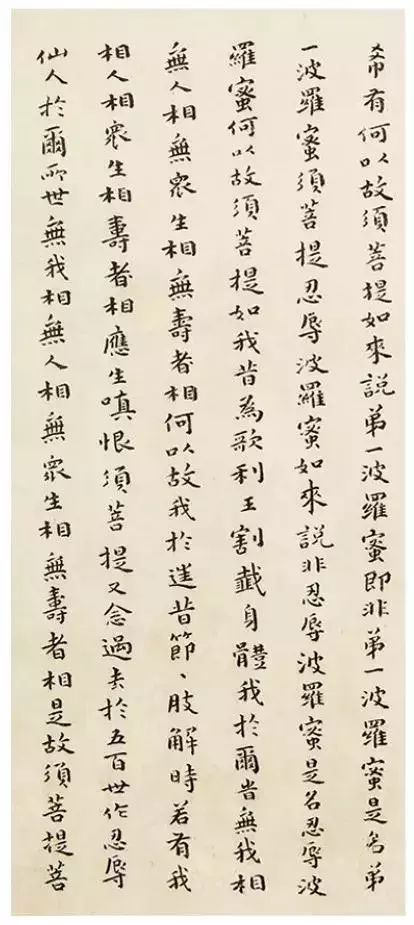 希有何以故須菩提如來說弟一波羅蜜即非弟一波羅蜜是名弟
一波羅蜜須菩提忍辱波羅蜜如來說非忍辱波羅蜜是名忍辱波
羅蜜何以故須菩提如我昔為歌利王割截身體我於爾旹無我相
無人相無眾生相無壽者相何以故我於迬昔節、肢解時若有我
相人相眾生相壽者相應生嗔恨須菩提又念過去於五百世作忍辱
仙人於爾所世無我相無人相無眾生相無壽者相是故須菩提菩